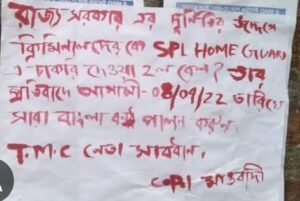 রাজ্য সরকার এর দুর্নিতির উদ্দেশে
ক্রিমিনালদের কে SPL HOME GUARD
এ চাকরি দেওয়া হল কেন? তার
প্রতিবাদে আগামী - 08/09/22 তারিখে
সারা বাংলা বন্ধ পালন করুন।
T.M.C নেতা সাবধান,
CPI মাওবাদী